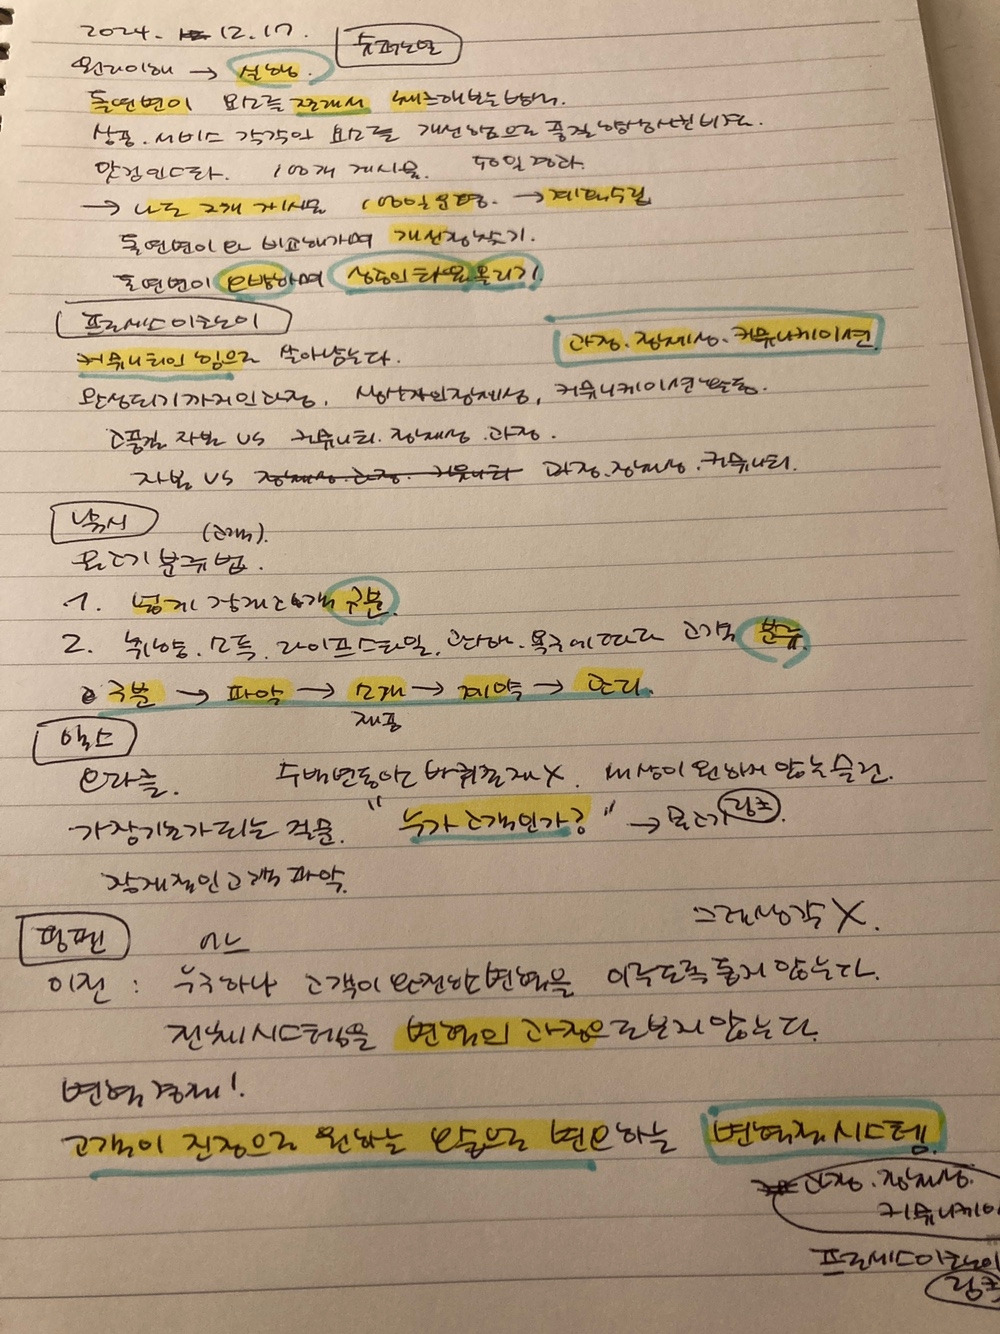 2024. 12.17.
슈퍼노멀
원리이해 → 실행.
돌연변이 요소를 쪼개서 벤치해보는방법.
상품.서비스 각각의 요소를 개선함으로 품질향상시킨비즈.
맛집인스타. 100개 게시물. 50일경과.
→ 나도 2개 게시물 100일운영. →계획수립
돌연변이와 비교해가며 개선점찾기.
돌연변이 모방하며 상승의타이밍올리기.
프로세스이코노미
과정.정체성.커뮤니케이션
커뮤니티의 힘으로 살아남는다.
완성되기까지의과정, 생산자의정체성, 커뮤니케이션활동.
고품질 자본 VS 커뮤니티.정체성.과정.
자본 VS 정체성.과정.커뮤니티 과정.정체성.커뮤니티.
낚시
(고객).
물고기분류법.
1. 넓게 잠재고객 구분.
2. 취향.소득.라이프스타일.관심.욕구에따라 고객을 분류.
구분 → 파악 → 소개 → 계약 → 관리.
제품
믹스
오라클. 수백번동안은 바뀌질게X 세상이 원하지 않는 물건.
가장기초가되는 질문. "누가 고객인가?" → 물고기 링크.
잠재적인고객파악.
핑펜 어느 그래생각X.
이전 : 누구하나 고객이 완전한변혁을 이루도록 돕지 않는다.
전체시스템을 변혁의 과정으로보지않는다.
변혁경제!
고객이 진정으로 원하는 모습으로 변모하는 변혁적시스템.
과정.정체성.
커뮤니케이
프로세스이코노미
링크